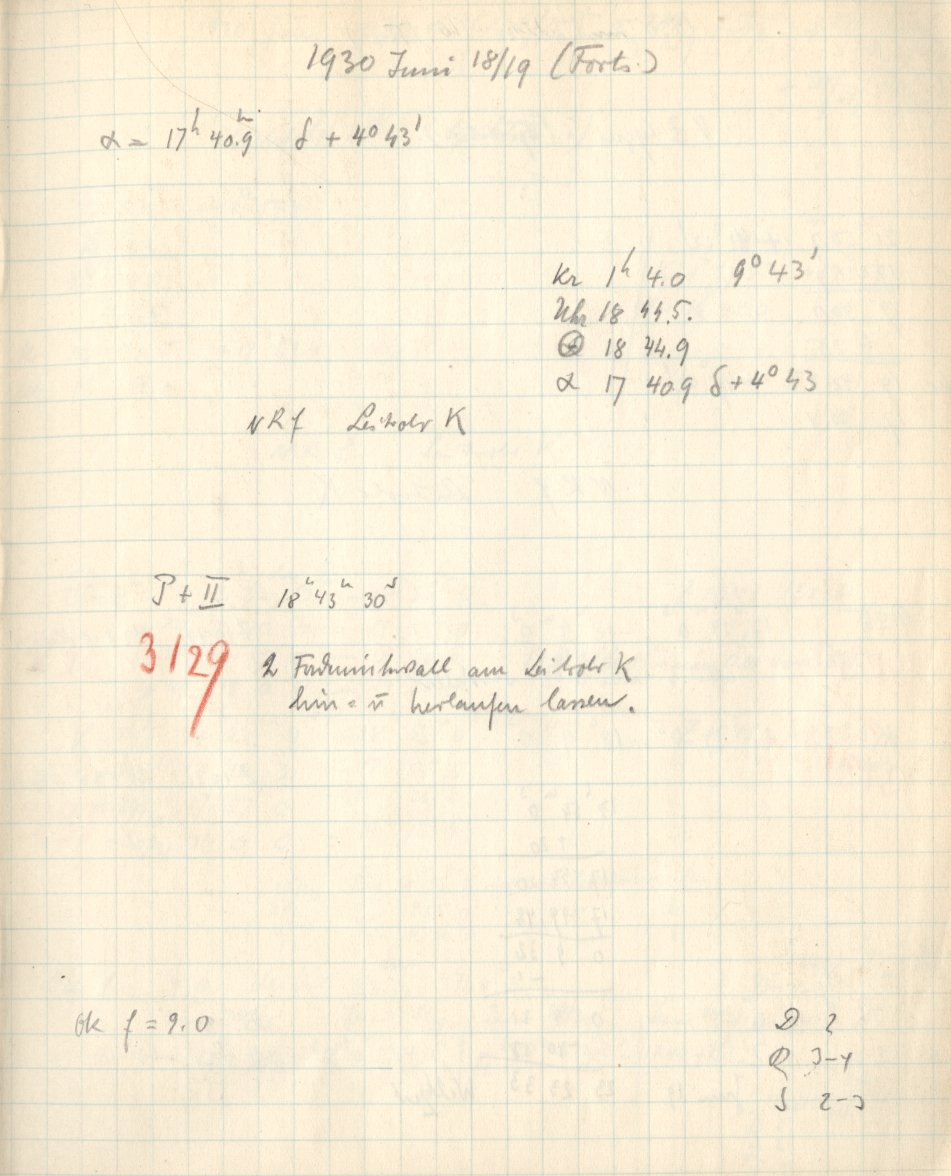 1930 Juni 18/19 (Forts.)
α = 17h 40.9m δ + 4° 43'
Kr 1h 4.0 9° 43'
Uhr 18 44.5.
18 44.9
α 17 40.9 δ + 4° 43
NRf Leitrohr K
P + II 18h 43m 30s
3129 2 Fadenintervall am Leitrohr K
hin = u herlaufen lassen.
Ok f = 9.0
D 2
R 3-4
S 2-3